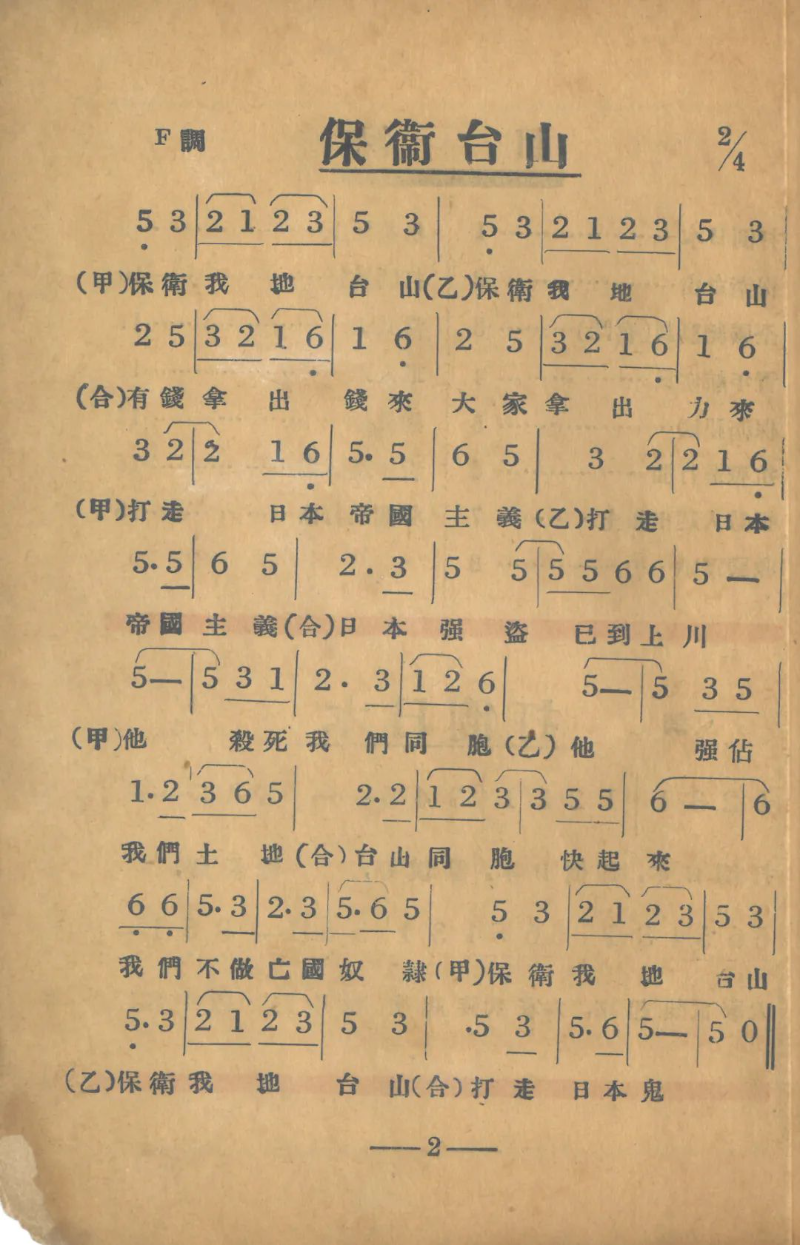 F調 保衞台山 2/4
5 3 | 2 1 2 3 | 5 3 5 3 | 2 1 2 3 | 5 3 |
(甲)保衛我地台山(乙)保衛我地台山
2 5 | 3 2 1 6 | 1 6 2 5 | 3 2 1 6 | 1 6 |
(合)有錢拿出錢來大家拿出力來
3 2 | 2 1 6 | 5. 5 | 6 5 | 3 2 | 2 1 6 |
(甲)打走日本帝國主義(乙)打走日本
5. 5 | 6 5 | 2. 3 | 5 5 | 5 5 6 6 | 5 — |
帝國主義(合)日本强盜已到上川
5 — | 5 3 1 | 2. 3 | 1 2 6 | 5 — | 5 3 5 |
(甲)他殺死我們同胞(乙)他强佔
1. 2 | 3 6 5 | 2. 2 | 1 2 3 | 3 5 5 | 6 — | 6
我們土地(合)台山同胞快起來
6 6 | 5. 3 | 2. 3 | 5. 6 5 | 5 3 | 2 1 2 3 | 5 3 |
我們不做亡國奴隸(甲)保衛我地台山
5. 3 | 2 1 2 3 | 5 3 | .5 3 | 5. 6 | 5 — | 5 0 ‖
(乙)保衛我地台山(合)打走日本鬼
—2—